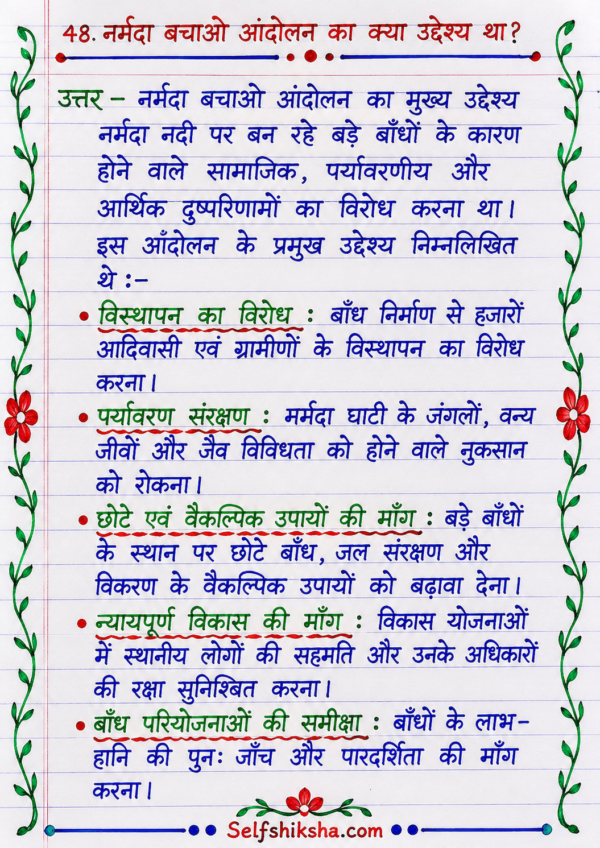 48. नर्मदा बचाओ आंदोलन का क्या उद्देश्य था?
उत्तर – नर्मदा बचाओ आंदोलन का मुख्य उद्देश्य
नर्मदा नदी पर बन रहे बड़े बाँधों के कारण
होने वाले सामाजिक, पर्यावरणीय और
आर्थिक दुष्परिणामों का विरोध करना था।
इस आँदोलन के प्रमुख उद्देश्य निम्नलिखित
थे :–
• विस्थापन का विरोध : बाँध निर्माण से हजारों
आदिवासी एवं ग्रामीणों के विस्थापन का विरोध
करना।
• पर्यावरण संरक्षण : मर्मदा घाटी के जंगलों, वन्य
जीवों और जैव विविधता को होने वाले नुकसान
को रोकना।
• छोटे एवं वैकल्पिक उपायों की माँग : बड़े बाँधों
के स्थान पर छोटे बाँध, जल संरक्षण और
विकरण के वैकल्पिक उपायों को बढ़ावा देना।
• न्यायपूर्ण विकास की माँग : विकास योजनाओं
में स्थानीय लोगों की सहमति और उनके अधिकारों
की रक्षा सुनिश्बित करना।
• बाँध परियोजनाओं की समीक्षा : बाँधों के लाभ–
हानि की पुनः जाँच और पारदर्शिता की माँग
करना।
Selfshiksha.com